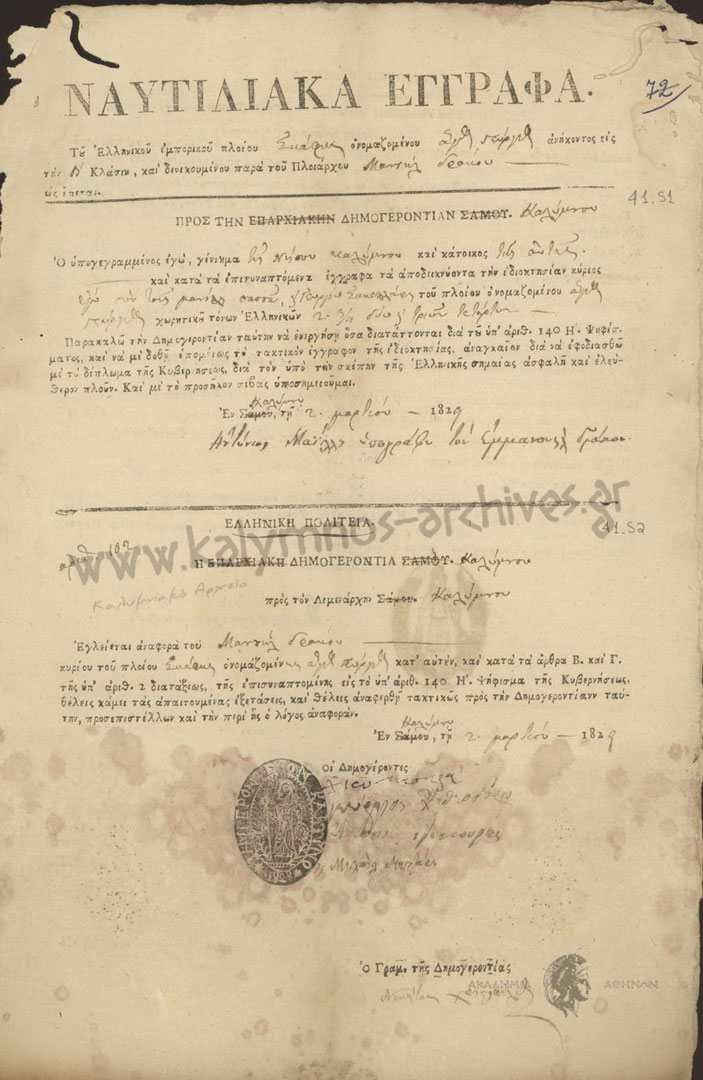 72
ΝΑΥΤΙΛΙΑΚΑ ΕΓΓΡΑΦΑ.
Τοῦ Ἑλληνικοῦ ἐμπορικοῦ πλοίου Σκάφης ὀνομαζομένου ἀνήκοντος εἰς
τὴν Κλάσιν, καὶ διοικουμένου παρὰ τοῦ Πλοιάρχου Μανόλη δράκου
ὡς ἕπεται.
41.S1
ΠΡΟΣ ΤΗΝ ΕΠΑΡΧΙΑΚΗΝ ΔΗΜΟΓΕΡΟΝΤΙΑΝ ΣΑΜΟΥ. Καλύμνου
Ὁ ὑπογεγραμμένος ἐγὼ, γέννημα τῆς Νήσου Καλύμνου καὶ κάτοικος τῆς αὐτῆς.
καὶ κατὰ τὰ ἐπισυναπτόμενα ἔγγραφα τὰ ἀποδεικνύοντα τὴν ἰδιοκτησίαν κύριος
τοῦ πλοίου ὀνομαζομένου
χωρητικῆ τόνων Ἑλληνικῶν
Παρακαλῶ τὴν Δημογεροντίαν ταύτην νὰ ἐνεργήσῃ ὅσα διατάττονται διὰ τοῦ ὑπ' ἀριθ. 140 Η'. Ψηφίσ-
ματος, καὶ νὰ μὲ δοθῇ ἑπομένως τὸ τακτικὸν ἔγγραφον τῆς ἰδιοκτησίας, ἀναγκαῖον διὰ νὰ ἐφοδιασθῶ
μὲ τὸ δίπλωμα τῆς Κυβερνήσεως, διὰ τὸν ὑπὸ τὴν σκέπην τῆς Ἑλληνικῆς σημαίας ἀσφαλῆ καὶ ἐλεύ-
θερον πλοῦν. Καὶ μὲ τὸ προσῆκον σέβας ὑποσημειοῦμαι.
Καλύμνῳ
Ἐν Σάμου, τῇ 2. μαρτίου — 1829
Ἀντώνιος ὑπογράφω τὸν Ἐμμανουὴλ δράκου.
ΕΛΛΗΝΙΚΗ ΠΟΛΙΤΕΙΑ.
41.S2
ἀριθ. 102
Η ΕΠΑΡΧΙΑΚΗ ΔΗΜΟΓΕΡΟΝΤΙΑ ΣΑΜΟΥ. Καλύμνου
Καλυμνιακό Αρχείο
πρὸς τὸν Λιμενάρχην Σάμου. Καλύμνου
Ἐγκλείεται ἀναφορὰ τοῦ Μανόλη δράκου
κυρίου τοῦ πλοίου Σκάφης ὀνομαζομένης κατ' αὐτὴν, καὶ κατὰ τὰ ἄρθρα Β. καὶ Γ.
τῆς ὑπ' ἀριθ. 2 διατάξεως, τῆς ἐπισυναπτομένης εἰς τὸ ὑπ' ἀριθ. 140 Η'. Ψήφισμα τῆς Κυβερνήσεως,
θέλεις κάμει τὰς ἀπαιτουμένας ἐξετάσεις, καὶ θέλεις ἀναφερθῆ τακτικῶς πρὸς τὴν Δημογεροντίανν ταύ-
την, προσεπιστέλλων καὶ τὴν περὶ ἧς ὁ λόγος ἀναφοράν.
Καλύμνῳ
Ἐν Σάμου, τῇ 2. μαρτίου — 1829
Οἱ Δημογέροντες
Ὁ Γραμ. τῆς Δημογεροντίας
ΑΚΑΔΗΜΙΑ ΑΘΗΝΩΝ
www.kalymnos-archives.gr